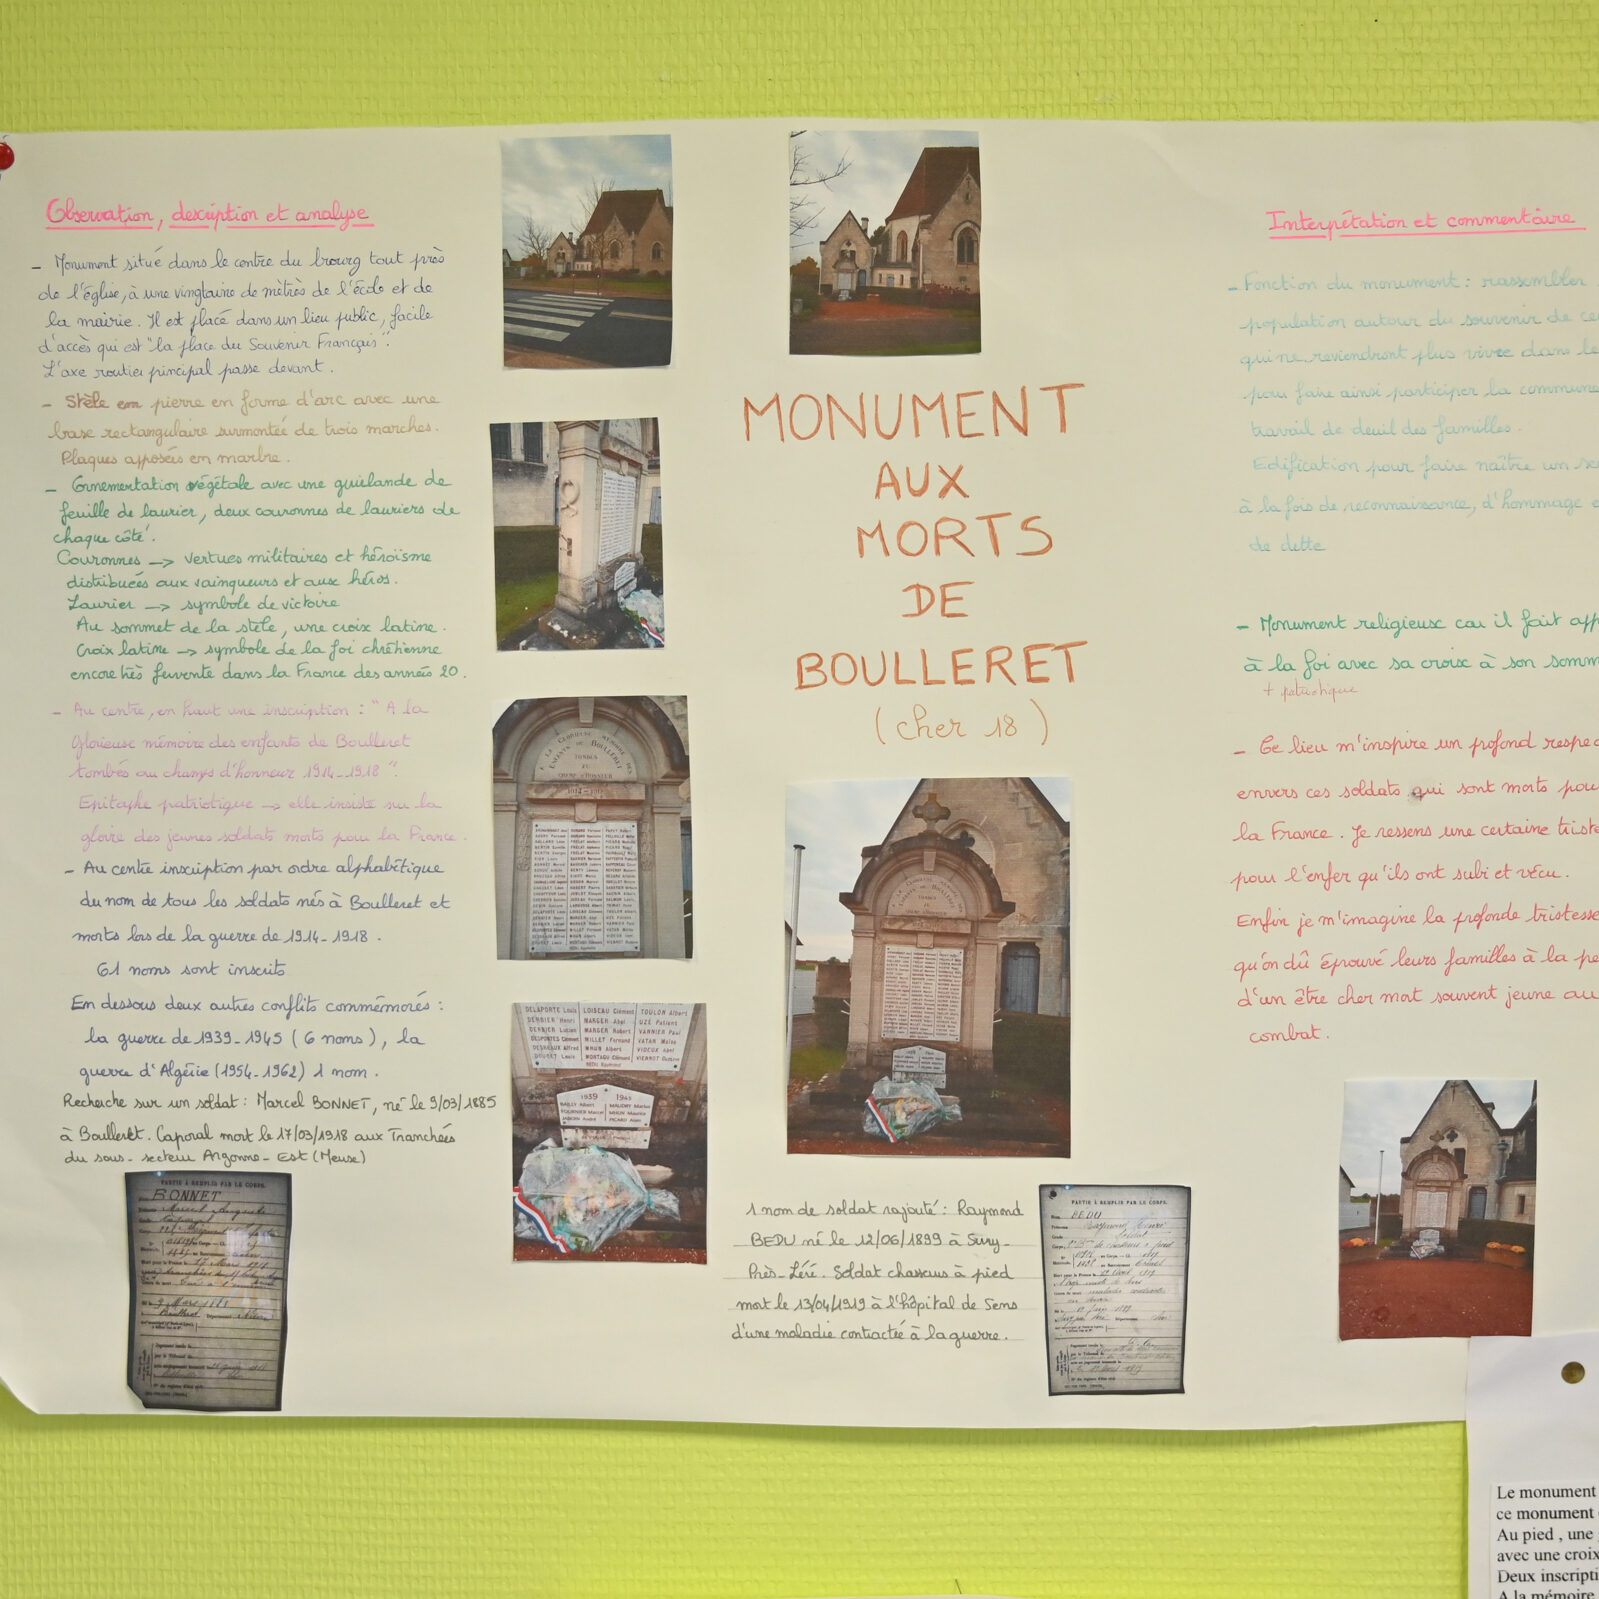 Observation, description et analyse
- Monument situé dans le centre du bourg tout près
de l'église, à une vingtaine de mètrès de l'école et de
la mairie. Il est placé dans un lieu public, facile
d'accès qui est "la place du Souvenir Français".
L'axe routier principal passe devant.
- Stèle en pierre en forme d'arc avec une
base rectangulaire surmontée de trois marches.
Plaques apposées en marbre.
- Ornementation végétale avec une guirlande de
feuille de laurier, deux couronnes de lauriers de
chaque côté.
Couronnes -> vertues militaires et héroïsme
distribuées aux vainqueurs et aux héros.
Laurier -> symbole de victoire
Au sommet de la stèle, une croix latine.
Croix latine -> symbole de la foi chrétienne
encore très fervente dans la France des années 20.
- Au centre, en haut une inscription : "A la
Glorieuse mémoire des enfants de Boulleret
tombés au champs d'honneur 1914-1918".
Epitaphe patriotique -> elle insiste sur la
gloire des jeunes soldats morts pour la France.
- Au centre inscription par ordre alphabétique
du nom de tous les soldats nés à Boulleret et
morts lors de la guerre de 1914-1918.
61 noms sont inscrits
En dessous deux autres conflits commémorés :
la guerre de 1939-1945 (6 noms), la
guerre d'Algérie (1954-1962) 1 nom.
Recherche sur un soldat : Marcel BONNET, né le 9/03/1885
à Boulleret. Caporal mort le 17/03/1918 aux Tranchées
du sous-secteur Argonne-Est (Meuse)
PARTIE À REMPLIR PAR LE CORPS.
BONNET
A LA GLORIEUSE MÉMOIRE DES
ENFANTS DE BOULLERET
TOMBÉS
AU
CHAMP D'HONNEUR
1914-1918
DELAPORTE Louis LOISEAU Clément TOULON Albert
DERBIER Henri MARGER Abel UZE Patient
DERBIER Lucien MARGER Robert VANNIER Paul
DESPONTES Clément MILLET Fernand VATAN Moïse
DESREAUX Alfred MHUN Albert VIDEUX Abel
DOURET Louis MONTAGU Clément VIERROT Gustave
BEDU Raymond
1939 1945
BAILLY Albert MAUDRY Marius
FOURNIER Marcel MHUN Maurice
JARDIN André PICARD
MONUMENT
AUX
MORTS
DE
BOULLERET
(cher 18)
1 nom de soldat rajouté : Raymond
BEDU né le 12/06/1899 à Sury-
Près-Léré. Soldat chasseurs à pied
mort le 13/04/1919 à l'hôpital de Sens
d'une maladie contractée à la guerre.
PARTIE À REMPLIR PAR LE CORPS.
BEDU
Interprétation et commentaire
- Fonction du monument : rassembler
population autour du souvenir de ce
qui ne reviendront plus vivre dans le
pour faire ainsi participer la commune
travail de deuil des familles.
Edification pour faire naître un se
à la fois de reconnaissance, d'hommage e
de dette
- Monument religieux car il fait app
à la foi avec sa croix à son somm
+ patriotique
- Ce lieu m'inspire un profond respec
envers ces soldats qui sont morts pou
la France. Je ressens une certaine triste
pour l'enfer qu'ils ont subi et vécu.
Enfin je m'imagine la profonde tristesse
qu'on dû éprouvé leurs familles à la pe
d'un être cher mort souvent jeune au
combat.
Le monument
ce monument
Au pied , une
avec une croix
Deux inscripti
A la mémoire